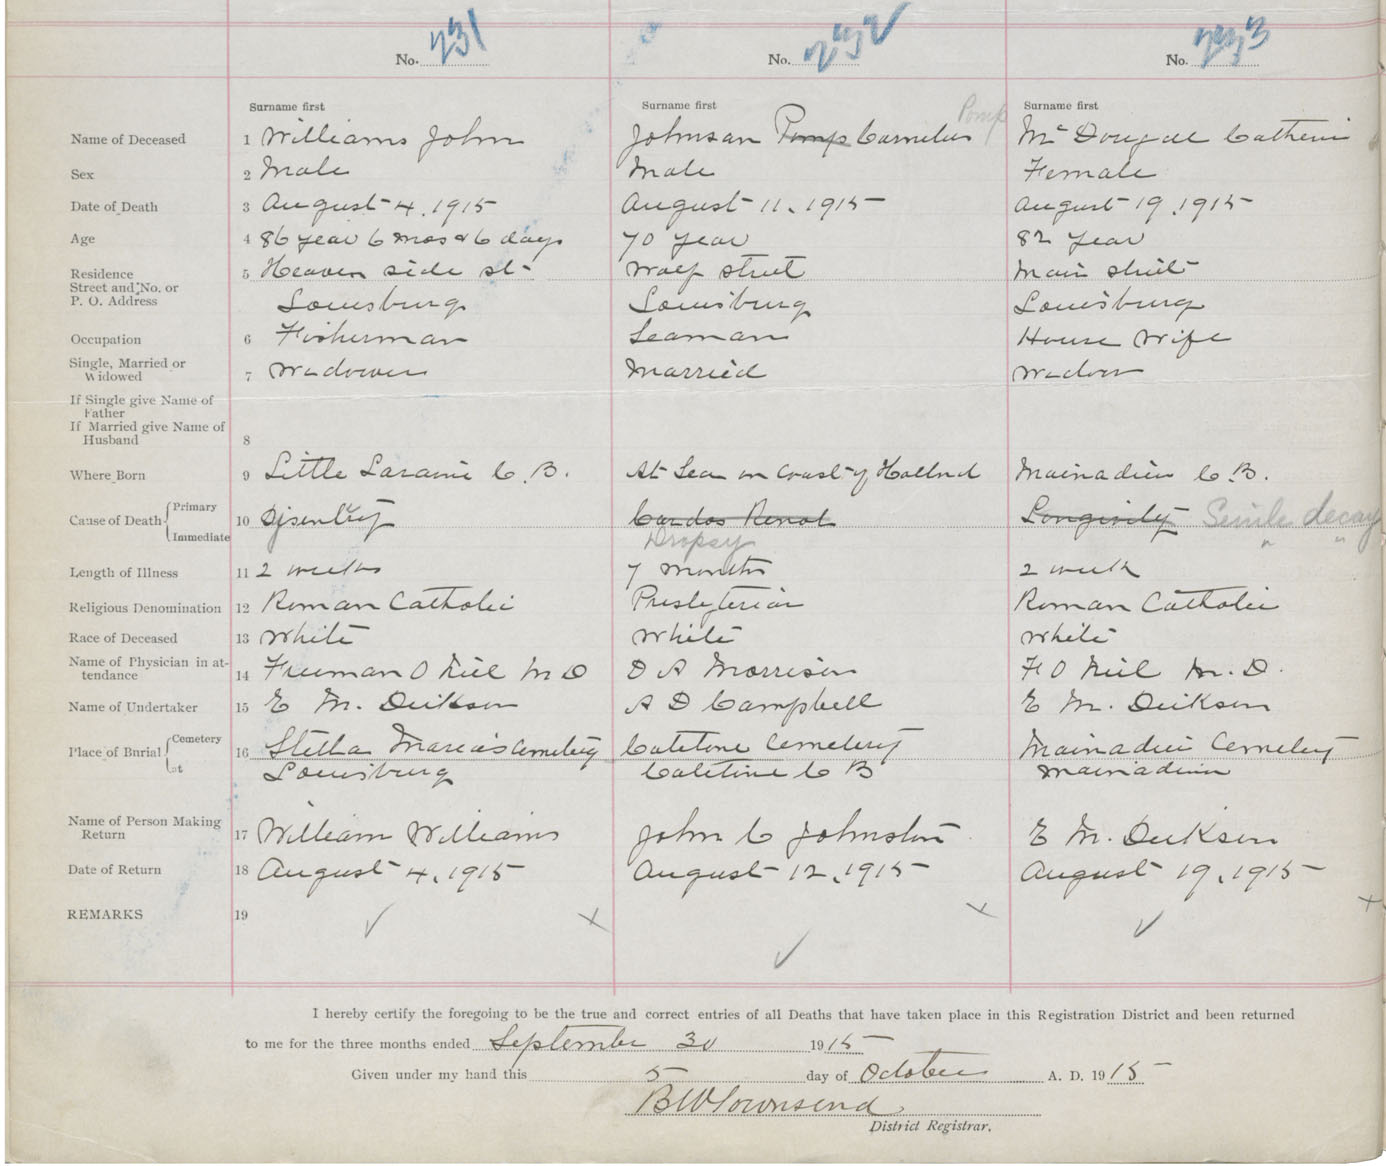 No. 231 No. 232 No. 233
Surname first Surname first Surname first
Pomp
Name of Deceased 1 Williams John Johnson Pomp Cornelus Mc Dougal Catherin
Sex 2 Male Male Female
Date of Death 3 August 4, 1915 August 11, 1915 August 19, 1915
Age 4 86 year 6 mos & 6 days 70 year 82 year
Residence 5 Heaven side st Wolf street Main street
Street and No. or
P. O. Address Louisburg Louisburg Louisburg
Occupation 6 Fisherman Seaman House Wife
Single, Married or
Widowed 7 Wadower Married Wadow
If Single give Name of
Father
If Married give Name of
Husband 8
Where Born 9 Little Laraine C. B. At Sea on Coast of Holland Mainadieu C. B.
Cause of Death { Primary
10 Dysentry Cardos Renal Longivity Senile decay
Immediate Dropsy " "
Length of Illness 11 2 weeks 7 months 2 week
Religious Denomination 12 Roman Catholic Presbyterian Roman Catholic
Race of Deceased 13 White White White
Name of Physician in at-
tendance 14 Freeman O Niel M D D A Morrison F O Niel M. D.
Name of Undertaker 15 E M. Dickson A D Campbell E M. Dickson
Place of Burial { Cemetery
16 Stella Maria's Cemetery Catetone Cemetery Mainadieu Cemetery
Lot Louisburg Catetone C B Mainadieu
Name of Person Making
Return 17 William Williams John C Johnston E M. Dickson
Date of Return 18 August 4, 1915 August 12, 1915 August 19, 1915
REMARKS 19
I hereby certify the foregoing to be the true and correct entries of all Deaths that have taken place in this Registration District and been returned
to me for the three months ended September 30 1915
Given under my hand this 5 day of October A. D. 1915
B W Townsend
District Registrar.